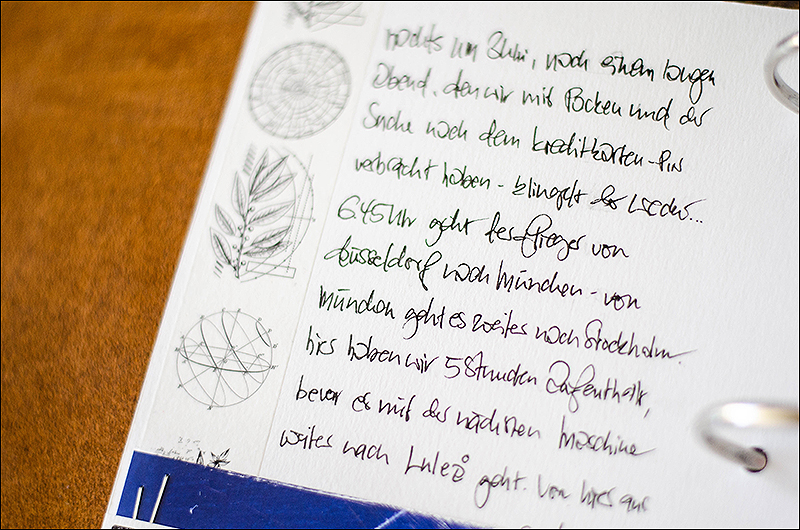 nachts um 3 Uhr, nach einem langen
Abend, den wir mit Packen und der
Suche nach dem Kreditkarten-Pin
verbracht haben - klingelt der Wecker...
6.45 Uhr geht der Flieger von
Düsseldorf nach München - von
München geht es weiter nach Stockholm.
hier haben wir 5 Stunden Aufenthalt,
bevor es mit der nächsten Maschine
weiter nach Luleå geht. Von hier aus